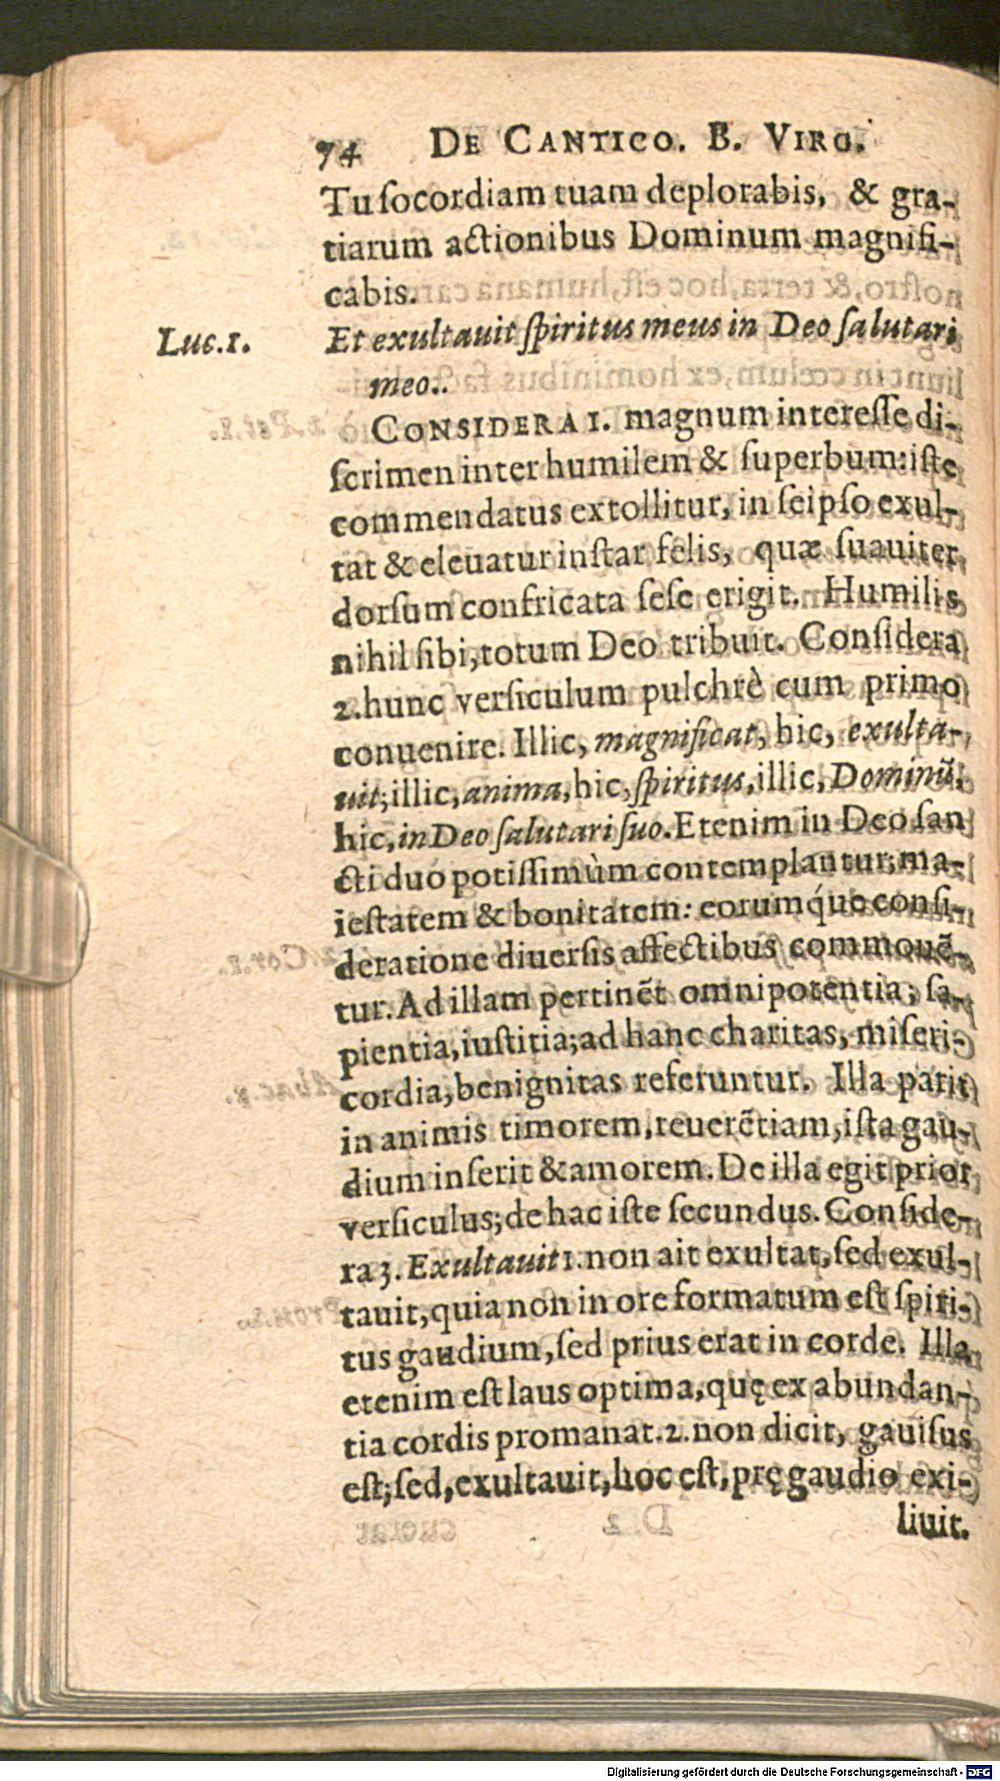 74 DE CANTICO. B. VIRG.
Tu ſocordiam tuam deplorabis, & gra-
tiarum actionibus Dominum magnifi-
cabis.
Luc.1. Et exultauit ſpiritus meus in Deo ſalutari
meo..
CONSIDERA 1. magnum intereſſe di-
ſcrimen inter humilem & ſuperbum: iſte
commendatus extollitur, in ſeipſo exul-
tat & eleuatur inſtar felis, quæ ſuauiter
dorſum confricata ſeſe erigit. Humilis
nihil ſibi, totum Deo tribuit. Conſidera
2. hunc verſiculum pulchrè cum primo
conuenire. Illic, magnificat, hic, exulta-
uit; illic, anima, hic, ſpiritus, illic, Dominũ,
hic, in Deo ſalutari ſuo. Etenim in Deo ſan
cti duo potiſſimùm contemplantur; ma-
ieſtatem & bonitatem: eorumq́ue conſi-
deratione diuerſis affectibus commouẽ-
tur. Ad illam pertinẽt omnipotentia, ſa-
pientia, iuſtitia; ad hanc charitas, miſeri-
cordia, benignitas referuntur. Illa parit
in animis timorem, reuerẽtiam, iſta gau-
dium inſerit & amorem. De illa egit prior
verſiculus; de hac iſte ſecundus. Conſide-
ra 3. Exultauit 1. non ait exultat, ſed exul-
tauit, quia non in ore formatum eſt ſpiri-
tus gaudium, ſed prius erat in corde. Illa
etenim eſt laus optima, quę ex abundan-
tia cordis promanat. 2. non dicit, gauiſus
eſt; ſed, exultauit, hoc eſt, prę gaudio exi-
liuit.
Digitalisierung gefördert durch die Deutsche Forschungsgemeinschaft - DFG